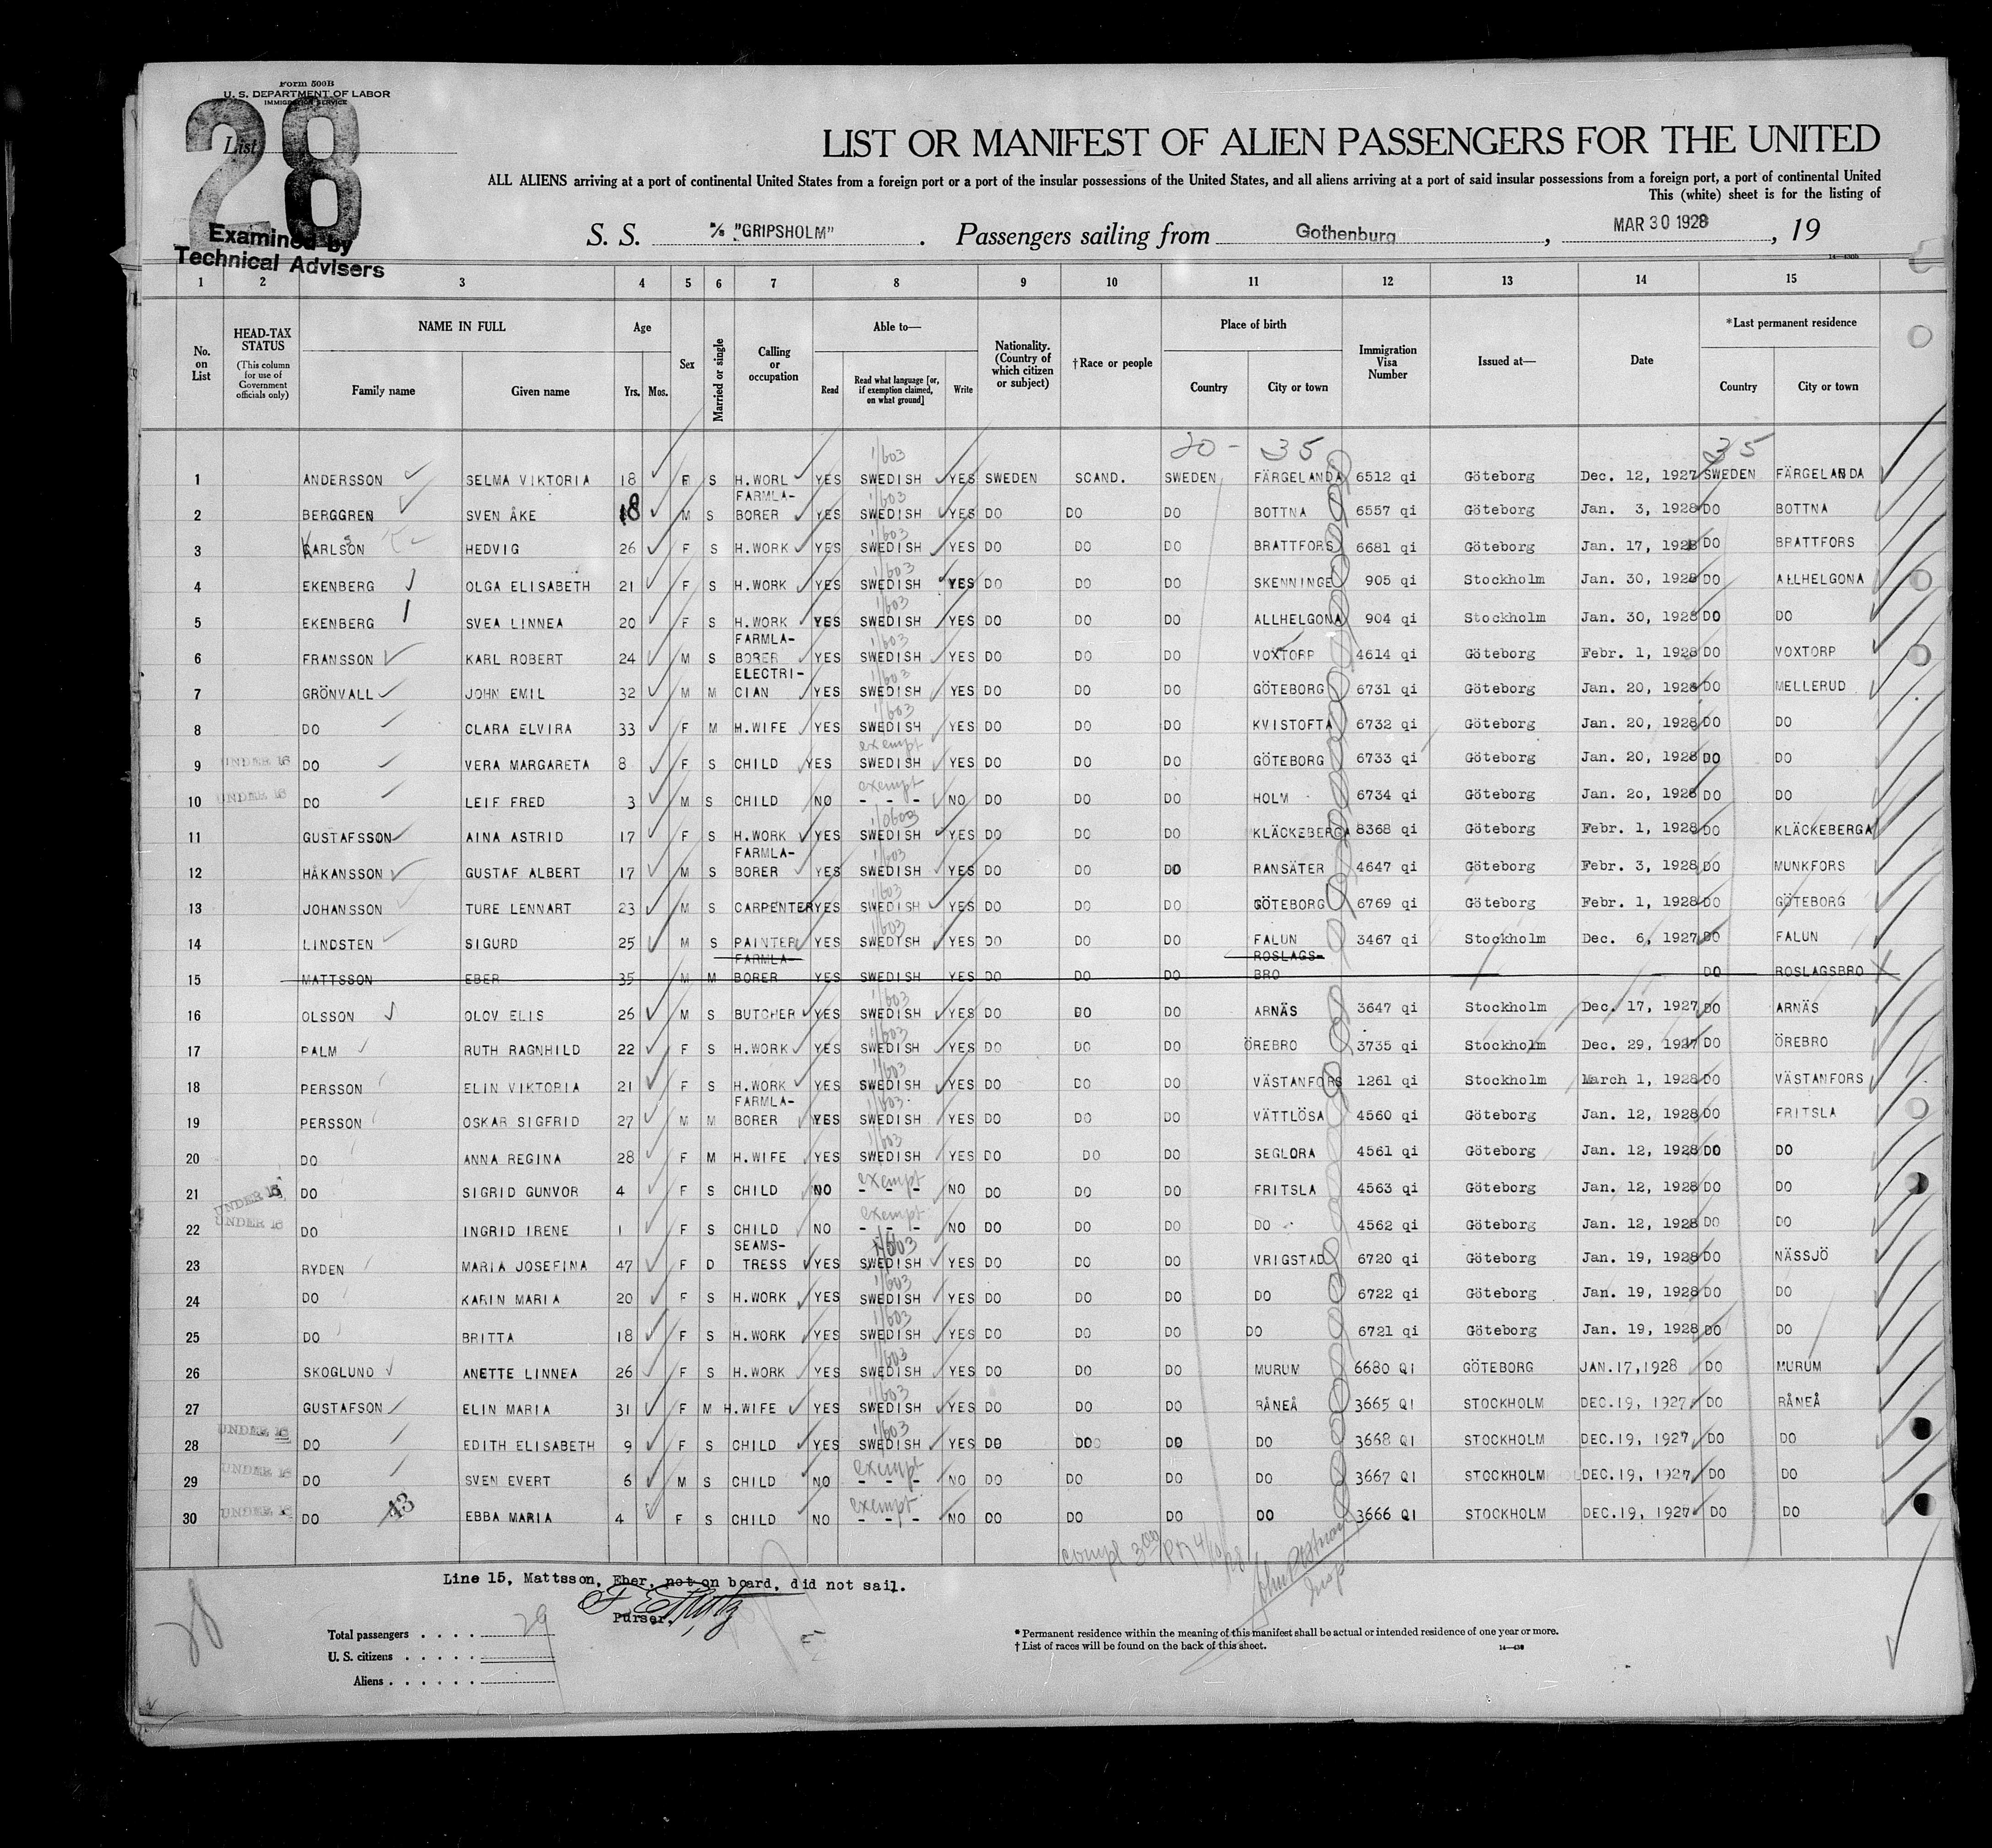 Form 500B
U. S. DEPARTMENT OF LABOR
IMMIGRATION SERVICE
28
List
Examined by
Technical Advisers
LIST OR MANIFEST OF ALIEN PASSENGERS FOR THE UNITED
ALL ALIENS arriving at a port of continental United States from a foreign port or a port of the insular possessions of the United States, and all aliens arriving at a port of said insular possessions from a foreign port, a port of continental United
This (white) sheet is for the listing of
S. S. S/S "GRIPSHOLM". Passengers sailing from Gothenburg, MAR 30 1928, 19
1 2 3 4 5 6 7 8 9 10 11 12 13 14 15
No. on List
HEAD-TAX STATUS (This column for use of Government officials only)
NAME IN FULL Family name Given name
Age Yrs. Mos.
Sex
Married or single
Calling or occupation
Able to— Read Read what language [or, if exemption claimed, on what ground] Write
Nationality. (Country of which citizen or subject)
†Race or people
Place of birth Country City or town
Immigration Visa Number
Issued at—
Date
*Last permanent residence Country City or town
20- 35 35
1 ANDERSSON SELMA VIKTORIA 18 F S H.WORL YES SWEDISH YES SWEDEN SCAND. SWEDEN FÄRGELANDA 6512 qi Göteborg Dec. 12, 1927 SWEDEN FÄRGELANDA
2 BERGGREN SVEN ÅKE 18 M S FARMLA-BORER YES SWEDISH YES DO DO DO BOTTNA 6557 qi Göteborg Jan. 3, 1928 DO BOTTNA
3 KARLSSON HEDVIG 26 F S H.WORK YES SWEDISH YES DO DO DO BRATTFORS 6681 qi Göteborg Jan. 17, 1928 DO BRATTFORS
4 EKENBERG OLGA ELISABETH 21 F S H.WORK YES SWEDISH YES DO DO DO SKENNINGE 905 qi Stockholm Jan. 30, 1928 DO ALLHELGONA
5 EKENBERG SVEA LINNEA 20 F S H.WORK YES SWEDISH YES DO DO DO ALLHELGONA 904 qi Stockholm Jan. 30, 1928 DO DO
6 FRANSSON KARL ROBERT 24 M S FARMLA-BORER YES SWEDISH YES DO DO DO VOXTORP 4614 qi Göteborg Febr. 1, 1928 DO VOXTORP
7 GRÖNVALL JOHN EMIL 32 M M ELECTRI-CIAN YES SWEDISH YES DO DO DO GÖTEBORG 6731 qi Göteborg Jan. 20, 1928 DO MELLERUD
8 DO CLARA ELVIRA 33 F M H.WIFE YES SWEDISH YES DO DO DO KVISTOFTA 6732 qi Göteborg Jan. 20, 1928 DO DO
9 UNDER 16 DO VERA MARGARETA 8 F S CHILD YES exempt SWEDISH YES DO DO DO GÖTEBORG 6733 qi Göteborg Jan. 20, 1928 DO DO
10 UNDER 16 DO LEIF FRED 3 M S CHILD NO exempt - - - NO DO DO DO HOLM 6734 qi Göteborg Jan. 2o, 1928 DO DO
11 GUSTAFSSON AINA ASTRID 17 F S H.WORK YES SWEDISH YES DO DO DO KLÄCKEBERGA 8368 qi Göteborg Febr. 1, 1928 DO KLÄCKEBERGA
12 HÅKANSSON GUSTAF ALBERT 17 M S FARMLA-BORER YES SWEDISH YES DO DO DO RANSÄTER 4647 qi Göteborg Febr. 3, 1928 DO MUNKFORS
13 JOHANSSON TURE LENNART 23 M S CARPENTER YES SWEDISH YES DO DO DO GÖTEBORG 6769 qi Göteborg Febr. 1, 1928 DO GÖTEBORG
14 LINDSTEN SIGURD 25 M S PAINTER YES SWEDISH YES DO DO DO FALUN 3467 qi Stockholm Dec. 6, 1927 DO FALUN
15 MATTSSON EBER 35 M M FARMLA-BORER YES SWEDISH YES DO DO DO ROSLAGS-BRO DO ROSLAGSBRO
16 OLSSON OLOV ELIS 26 M S BUTCHER YES SWEDISH YES DO DO DO ARNÄS 3647 qi Stockholm Dec. 17, 1927 DO ARNÄS
17 PALM RUTH RAGNHILD 22 F S H.WORK YES SWEDISH YES DO DO DO ÖREBRO 3735 qi Stockholm Dec. 29, 1927 DO ÖREBRO
18 PERSSON ELIN VIKTORIA 21 F S H.WORK YES SWEDISH YES DO DO DO VÄSTANFORS 1261 qi Stockholm March 1, 1928 DO VÄSTANFORS
19 PERSSON OSKAR SIGFRID 27 M M FARMLA-BORER YES SWEDISH YES DO DO DO VÄTTLÖSA 4560 qi Göteborg Jan. 12, 1928 DO FRITSLA
20 DO ANNA REGINA 28 F M H.WIFE YES SWEDISH YES DO DO DO SEGLORA 4561 qi Göteborg Jan. 12, 1928 DO DO
21 UNDER 16 DO SIGRID GUNVOR 4 F S CHILD NO exempt - - - NO DO DO DO FRITSLA 4563 qi Göteborg Jan. 12, 1928 DO DO
22 UNDER 16 DO INGRID IRENE 1 F S CHILD NO exempt - - - NO DO DO DO DO 4562 qi Göteborg Jan. 12, 1928 DO DO
23 RYDEN MARIA JOSEFINA 47 F D SEAMS-TRESS YES SWEDISH YES DO DO DO VRIGSTAD 6720 qi Göteborg Jan. 19, 1928 DO NÄSSJÖ
24 DO KARIN MARIA 20 F S H.WORK YES SWEDISH YES DO DO DO DO 6722 qi Göteborg Jan. 19, 1928 DO DO
25 DO BRITTA 18 F S H.WORK YES SWEDISH YES DO DO DO DO 6721 qi Göteborg Jan. 19, 1928 DO DO
26 SKOGLUND ANETTE LINNEA 26 F S H.WORK YES SWEDISH YES DO DO DO MURUM 6680 QI GÖTEBORG JAN.17,1928 DO MURUM
27 GUSTAFSON ELIN MARIA 31 F M H.WIFE YES SWEDISH YES DO DO DO RÅNEÅ 3665 QI STOCKHOLM DEC.19, 1927 DO RÅNEÅ
28 UNDER 16 DO EDITH ELISABETH 9 F S CHILD YES SWEDISH YES DO DO DO DO 3668 QI STOCKHOLM DEC.19, 1927 DO DO
29 UNDER 16 DO SVEN EVERT 6 M S CHILD NO exempt - - - NO DO DO DO DO 3667 QI STOCKHOLM DEC.19, 1927 DO DO
30 UNDER 16 DO 43 EBBA MARIA 4 F S CHILD NO exempt - - - NO DO DO DO DO 3666 QI STOCKHOLM DEC.19, 1927 DO DO
Line 15, Mattsson, Eber, not on board, did not sail.
Purser.
Total passengers . . . . 29
U. S. citizens . . . . .
Aliens . . . . . .
* Permanent residence within the meaning of this manifest shall be actual or intended residence of one year or more.
† List of races will be found on the back of this sheet.